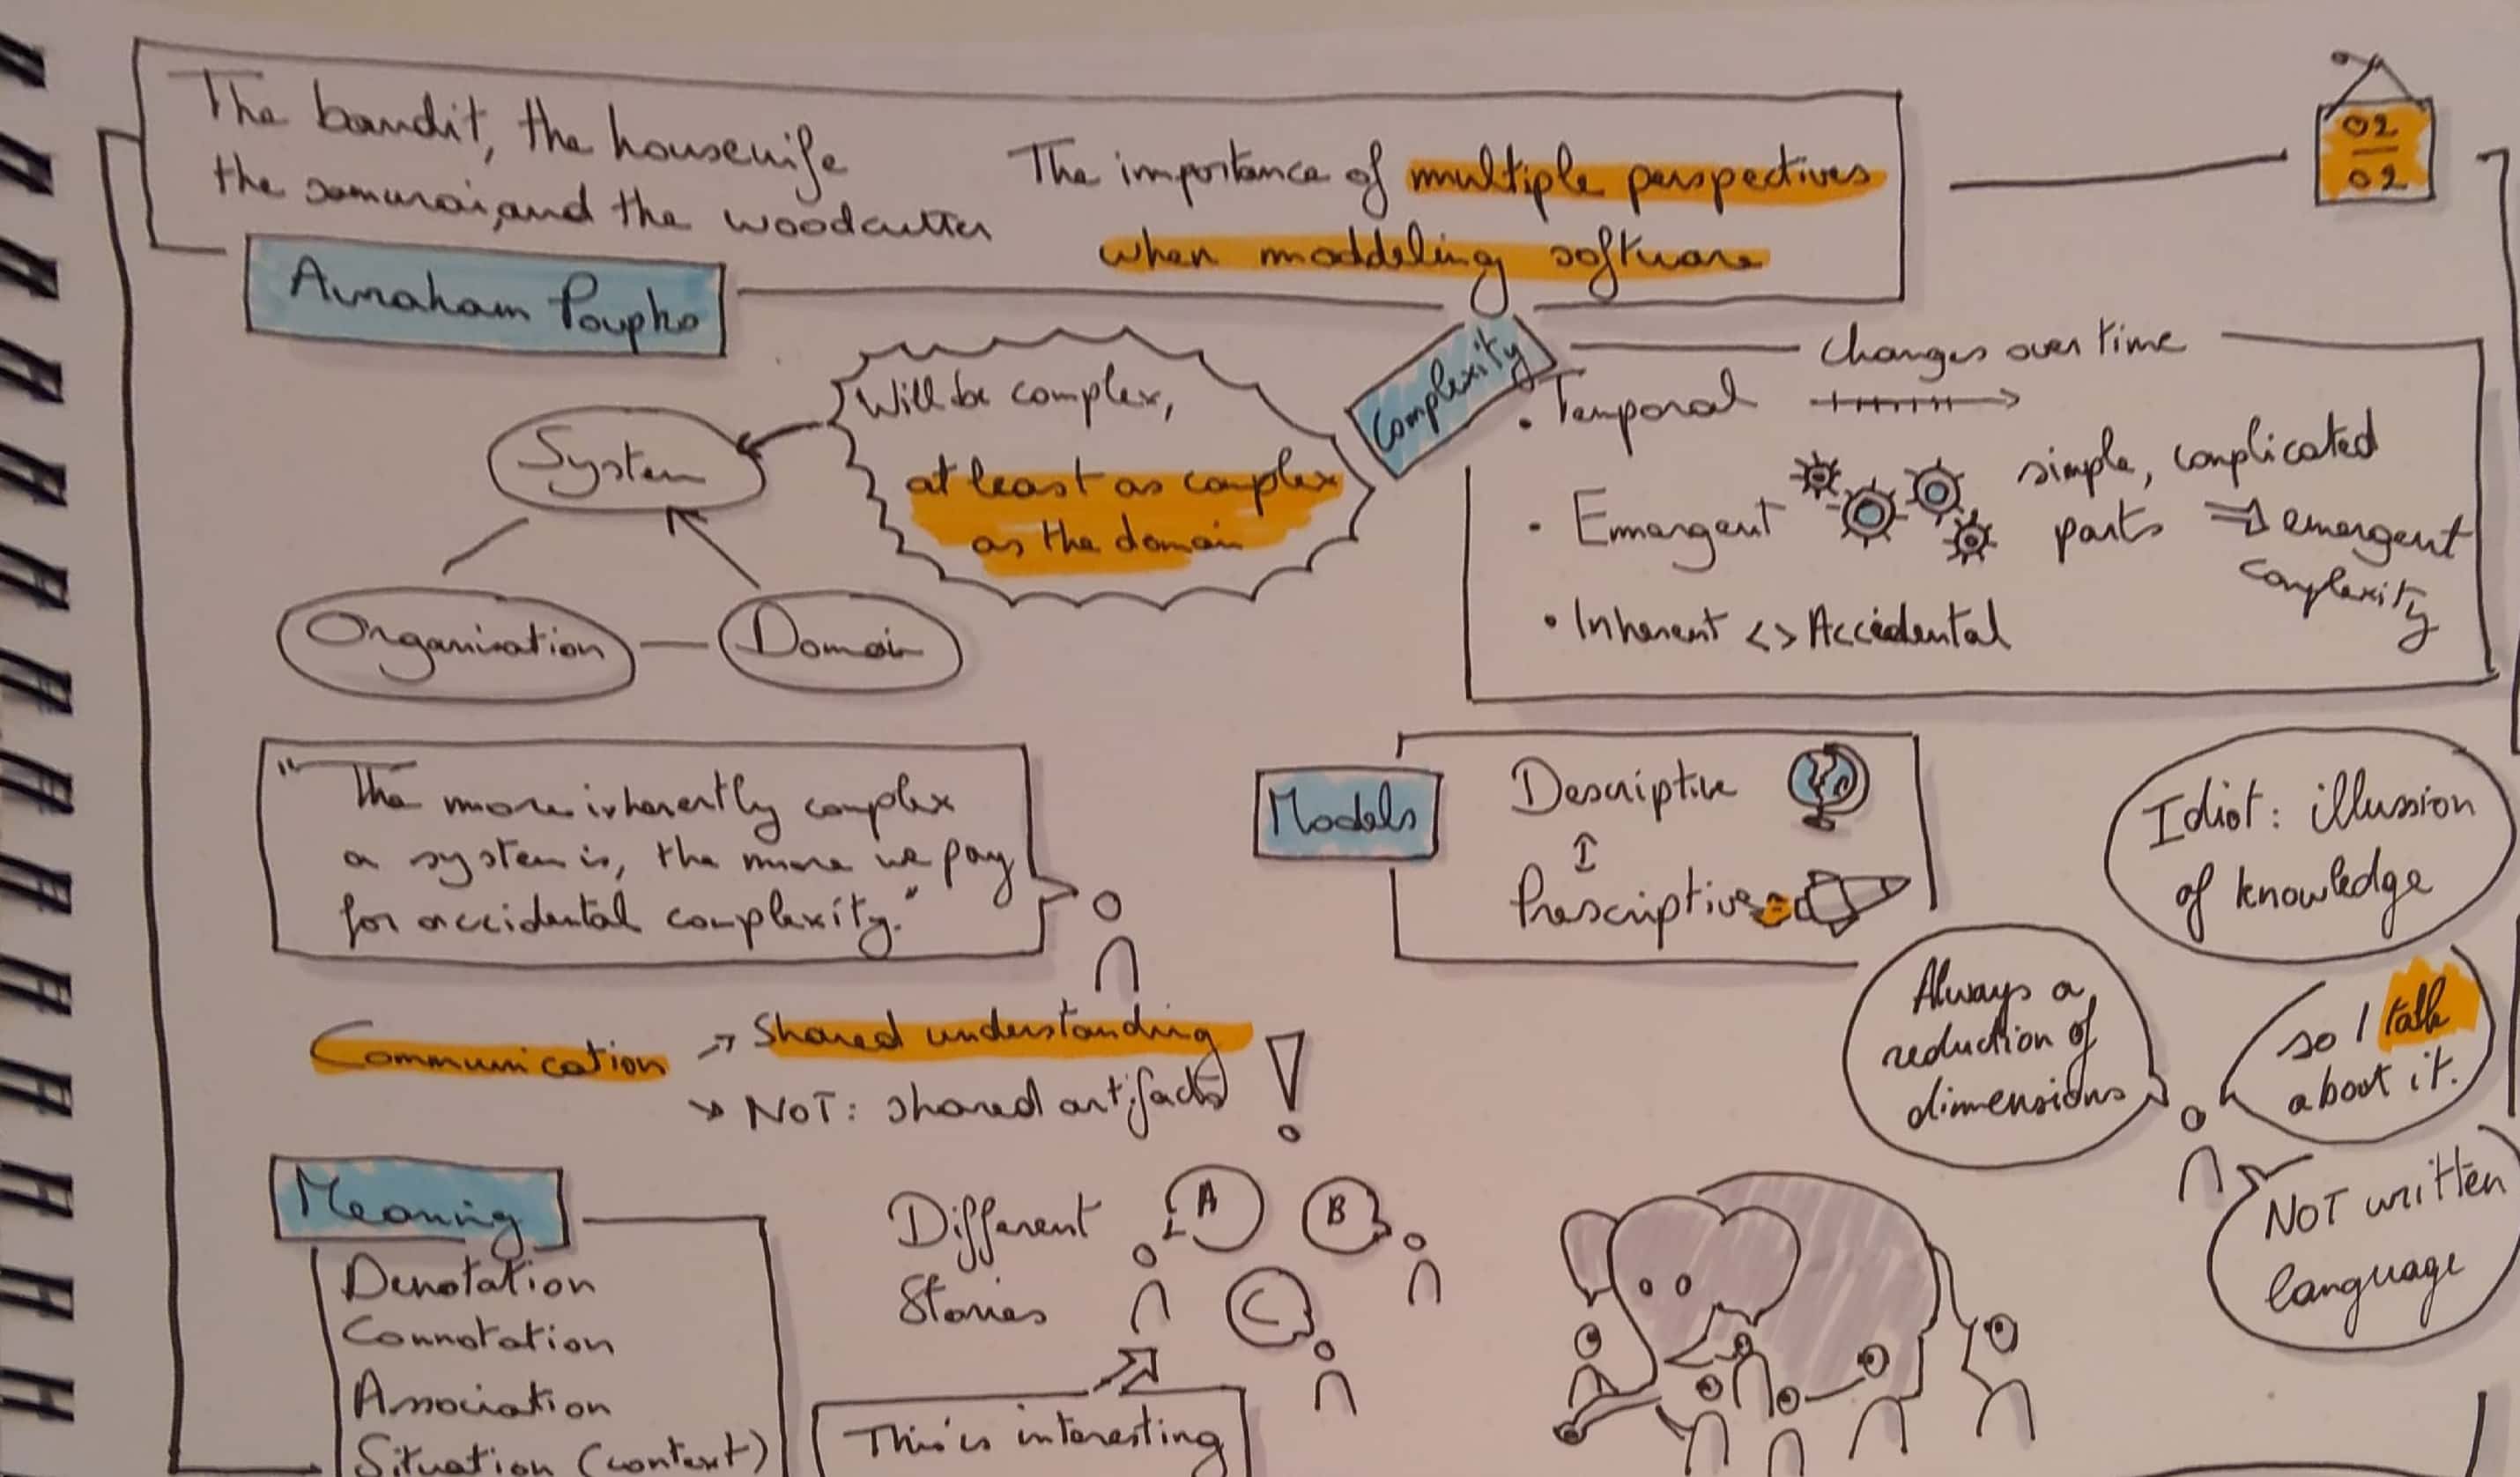 The bandit, the housewife
the samurai, and the woodcutter
The importance of multiple perspectives
when moddeling software
02
02
Avraham Poupko
System
Organisation
Domain
Will be complex,
at least as complex
as the domain
Complexity
changes over time
• Temporal
• Emergent
simple, complicated
parts ⇒ emergent
complexity
• Inherent <> Accidental
"The more inherently complex
a system is, the more we pay
for accidental complexity."
Models
Descriptive
Prescriptive
Idiot: illussion
of knowledge
Always a
reduction of
dimensions
so I talk
about it.
NOT written
language
Communication
→ Shared understanding
→ NOT: shared artifacts
!
Meaning
Denotation
Connotation
Association
Situation (context)
Different
Stories
A
B
C
This is interesting